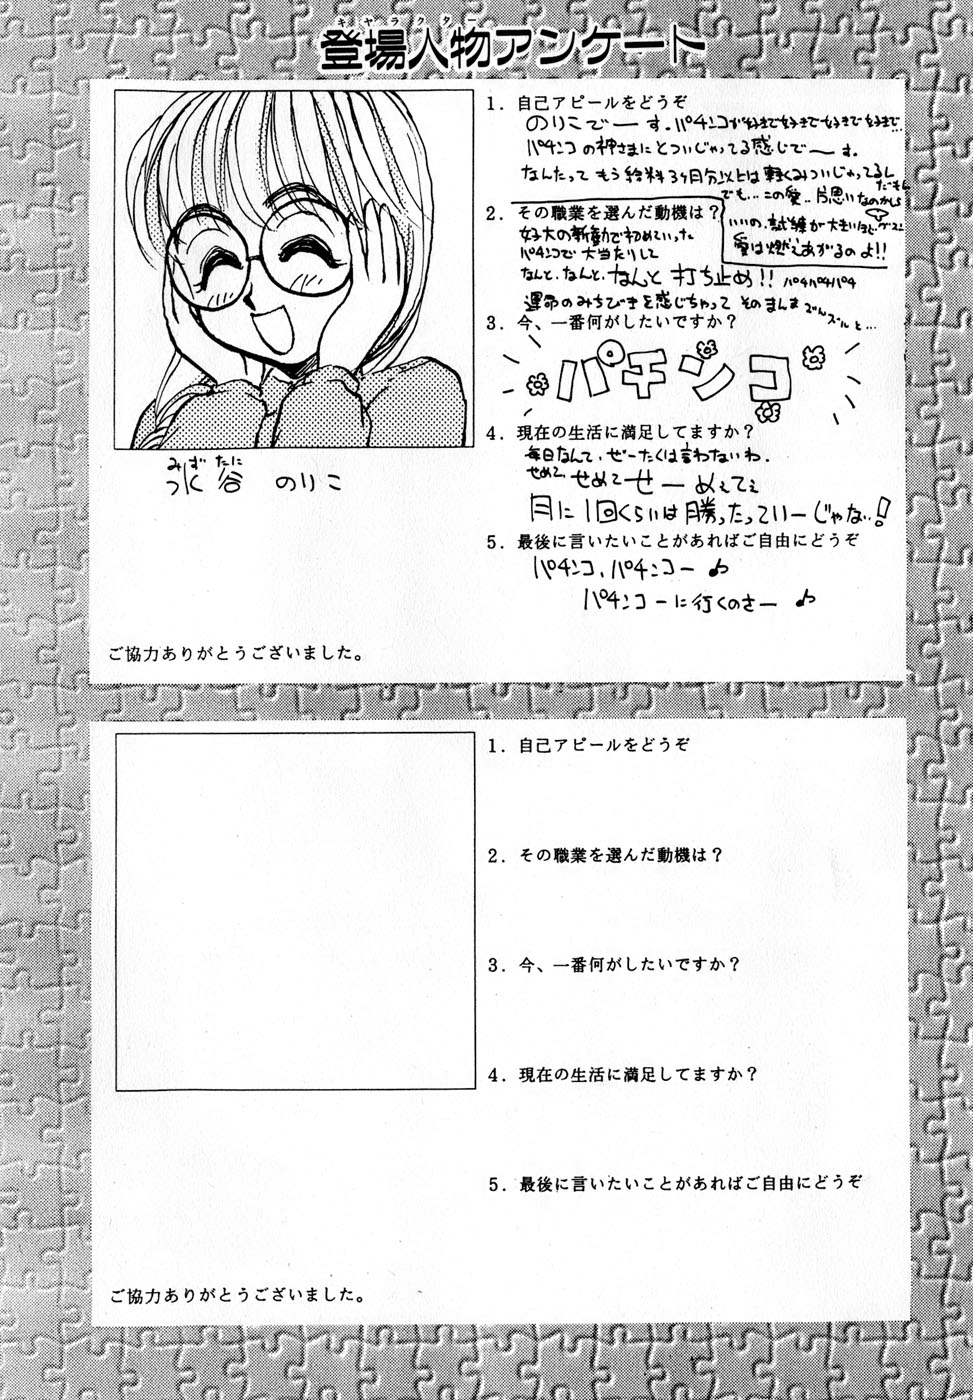 キャラクター
登場人物アンケート
1. 自己アピールをどうぞ
のりこでーす。パチンコが好きで好きで好きで好きで…
パチンコの神さまにとついじゃってる感じでーす。
なんたって もう給料3ヶ月分以上は軽くみついじゃってるし
だーもん
でも…この愛‥片思いなのかしら
いいの、試練が大きいほど
愛は燃えあがるのよ!!
2. その職業を選んだ動機は？
パチンコで大当たりして
なんと、なんと、なんと 打ち止め!! パチパチパチ
運命のみちびきを感じちゃって そのまんまずんズルと…
3. 今、一番何がしたいですか？
パチンコ
4. 現在の生活に満足してますか？
毎日なんて、ぜーたくは言わないわ。
せめて、せめてせーめぇてぇ
月に1回くらいは勝ったっていーじゃない!
5. 最後に言いたいことがあればご自由にどうぞ
パチンコ、パチンコー♪
パチンコーに行くのさー♪
みずたに
水谷 のりこ
ご協力ありがとうございました。
1. 自己アピールをどうぞ
2. その職業を選んだ動機は？
3. 今、一番何がしたいですか？
4. 現在の生活に満足してますか？
5. 最後に言いたいことがあればご自由にどうぞ
ご協力ありがとうございました。